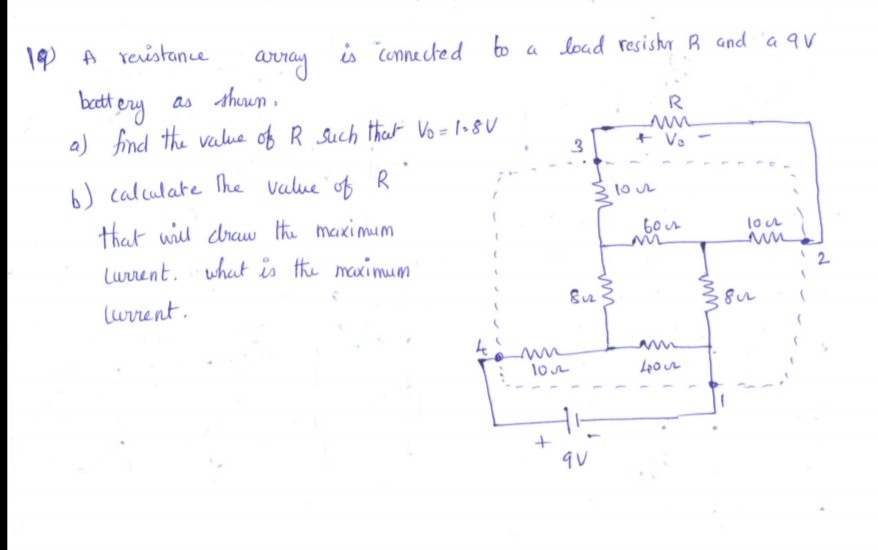 19) A resistance array is connected to a load resistor R and a 9V
battery as shown.
a) find the value of R such that V₀ = 1.8V
b) calculate the value of R
that will draw the maximum
current. what is the maximum
current.
R
+ V₀ -
3
10Ω
60Ω
10Ω
2
8Ω
8Ω
4
10Ω
40Ω
1
+ -
9V